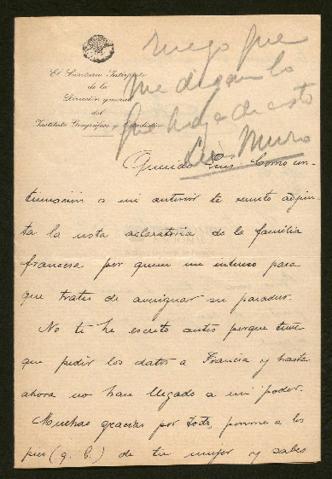 El Secretario Intérprete
de la
Dirección general
del
Instituto Geográfico y Estadístico
ruego que
me digan lo
que haya de esto
Querido Luis: Como con-
tinuación a mi anterior te remito adjun-
ta la nota aclaratoria de la familia
francesa por quien me intereso para
que trates de averiguar su paradero.
No te he escrito antes porque tuve
que pedir los datos a Francia y hasta
ahora no han llegado a mi poder.
Muchas gracias por todo, ponme a los
pies (q. b.) de tu mujer y sabes